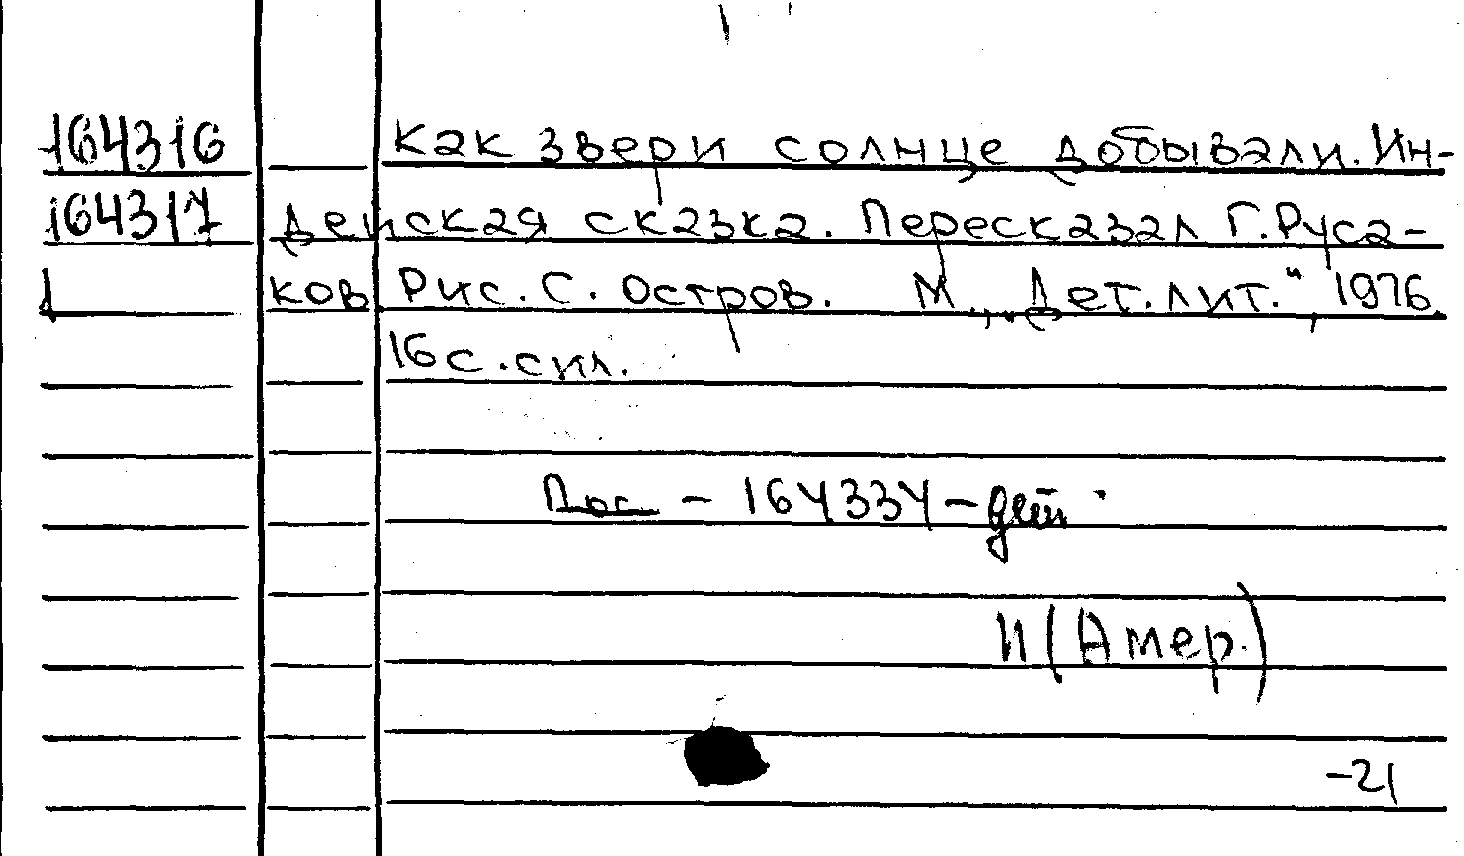 164316 Как звери солнце добывали. Ин-
164317 дейская сказка. Пересказал Г. Руса-
ков. Рис. С. Остров. М., „Дет. лит.", 1976.
16 с. с ил.
Дос - 164334 - дет
И (Амер.)
-21